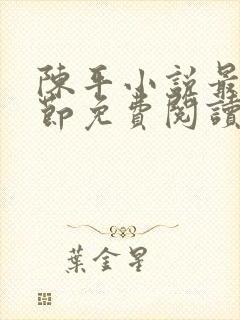 陳平小說最
節免費閱讀
葉金星